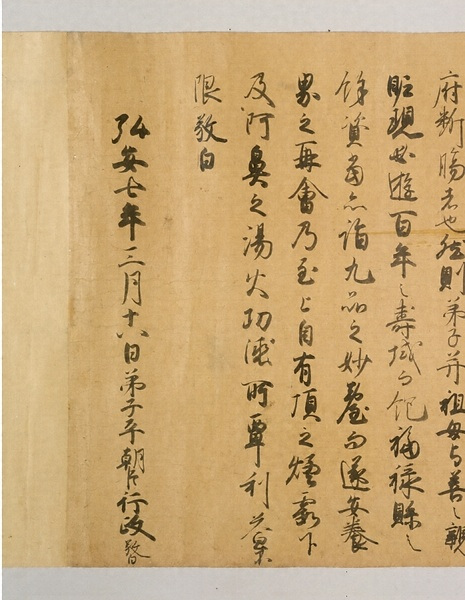 府断腸者也然則弟子并祖母与善之親
貺現必遊百年之寿域而飽福禄縣々
余資当亦詣九品之妙台而遂安養
界之再会乃至上自有頂之煙霞下
及阿鼻之湯火功徳所覃利益無
限敬白
弘安七年三月十八日弟子平朝臣行政敬白